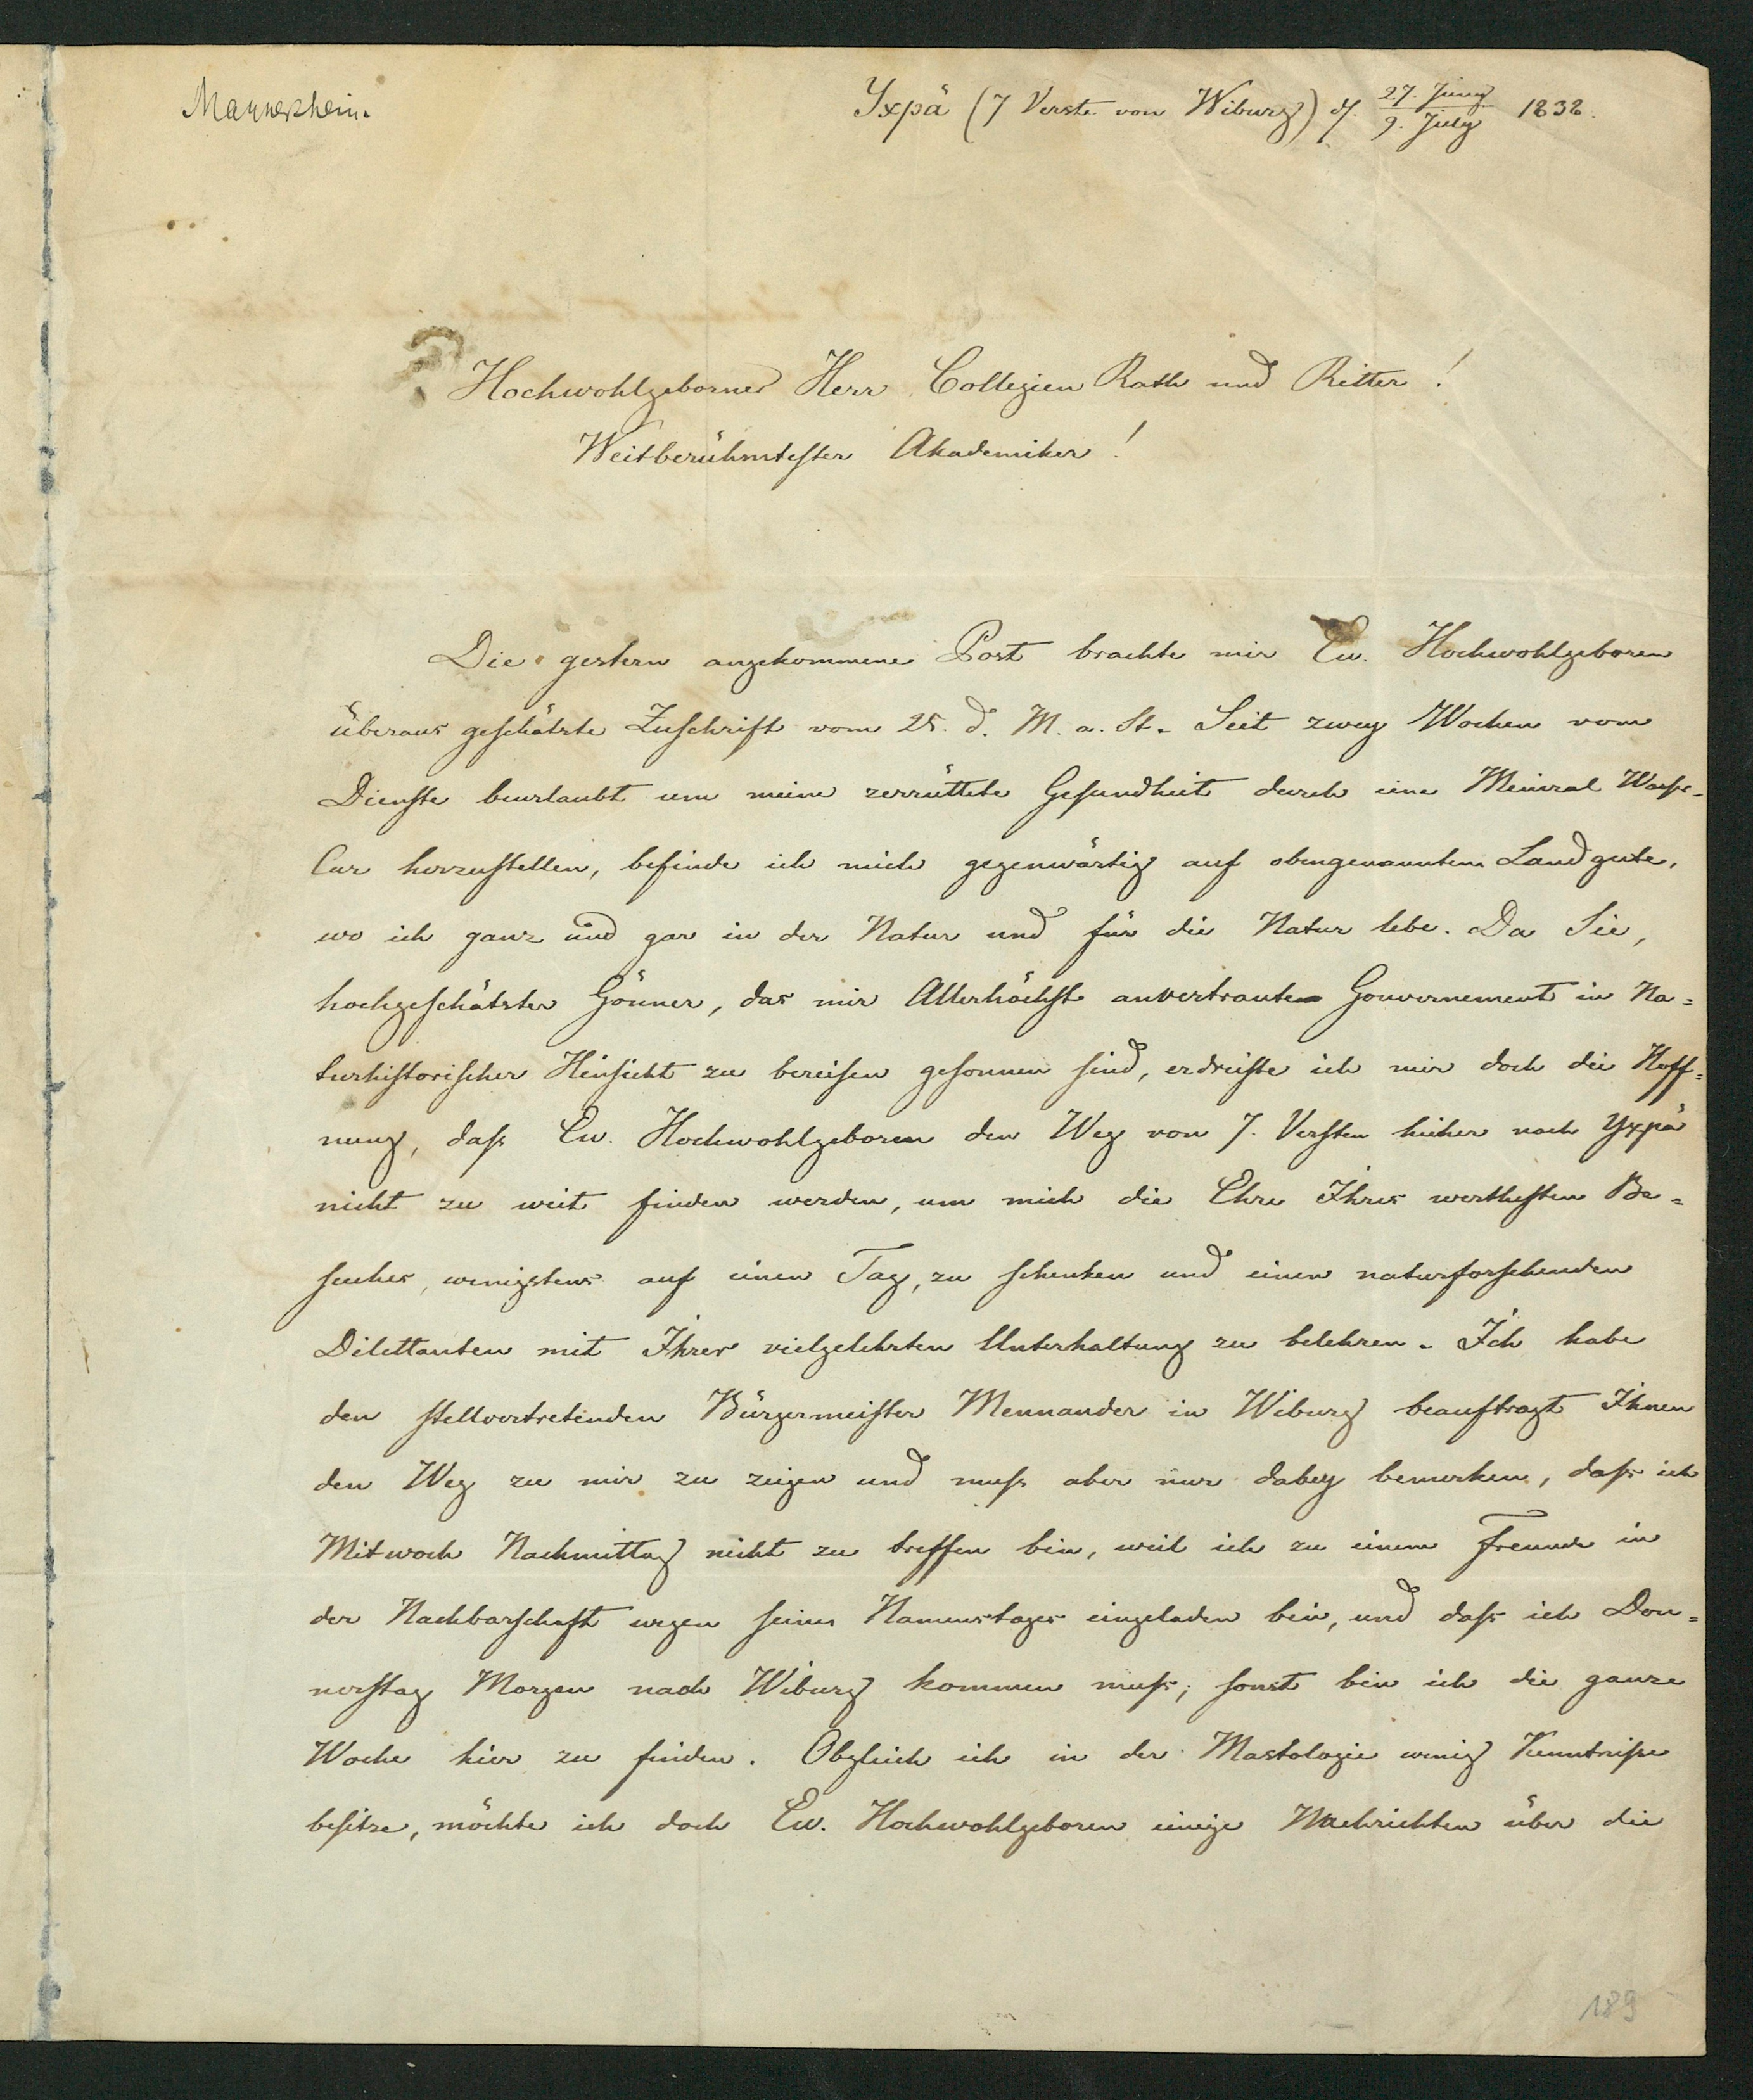 Mannerheim.
Yxpä (7 Verste von Wiburg) d. 27. Juny / 9. July 1838.
Hochwohlgeborner Herr Collegien Rath und Ritter!
Weitberühmtester Akademiker!
Die gestern angekommene Post brachte mir Ew. Hochwohlgeboren
überaus geschätzte Zuschrift vom 25. d. M. a. St. Seit zwey Wochen vom
Dienste beurlaubt um meine zerrüttete Gesundheit durch eine Meniral Wasse-
Cur herzustellen, befinde ich mich gegenwärtig auf obengenanntem Landgute,
wo ich ganz und gar in der Natur und für die Natur lebe. Da Sie,
hochgeschätzter Gönner, das mir Allerhöchst anvertraute Gouvernement in Na=
turhistorischer Hinsicht zu bereisen gesonnen sind, erdreiste ich mir doch die Hoff=
nung, daß Ew. Hochwohlgeboren den Weg von 7. Versten hieher nach Yxpä
nicht zu weit finden werden, um mich die Ehre Ihres werthesten Be=
suches, wenigstens auf einen Tag, zu schenken und einen naturforschenden
Dilettanten mit Ihrer vielgelehrten Unterhaltung zu belehren. Ich habe
den stellvertretenden Bürgermeister Mennander in Wiburg beauftragt Ihnen
den Weg zu mir zu zeigen und muß aber nur dabey bemerken, daß ich
Mitwoch Nachmittag nicht zu treffen bin, weil ich zu einem Freunde in
der Nachbarschaft wegen seines Namenstages eingeladen bin, und daß ich Don=
nerstag Morgen nach Wiburg kommen muß; sonst bin ich die ganze
Woche hier zu finden. Obgleich ich in der Mastologie wenig Kenntniße
besitze, möchte ich doch Ew. Hochwohlgeboren einige Nachrichten über die
189